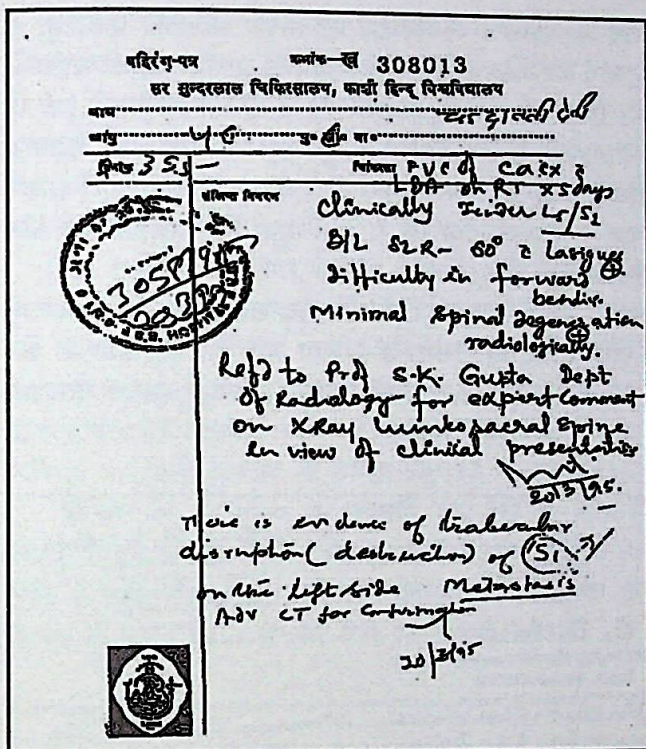 बहिरंग-पत्र क्रमांक-ख 308013
सर सुन्दरलाल चिकित्सालय, काशी हिन्दू विश्वविद्यालय
नाम
आयु पु० स्त्री० बा०
दिनांक
संक्षिप्त विवरण
FUC of Ca Cx c̄
LBA on RT x 5 days
Clinically Tender L5/S1
B/L SLR- 60° c̄ Lasigues ⊕
difficulty in forward
bending.
Minimal Spinal degeneration ⊕
radiologically.
Refd to Prof S.K. Gupta Dept
of Radiology for expert Comment
on XRay Lumbosacral Spine
in view of clinical presentation
20/3/95.
There is evidence of trabecular
disruption (destruction) of S1
on the left side Metastasis
Adv CT for Confirmation
20/3/95